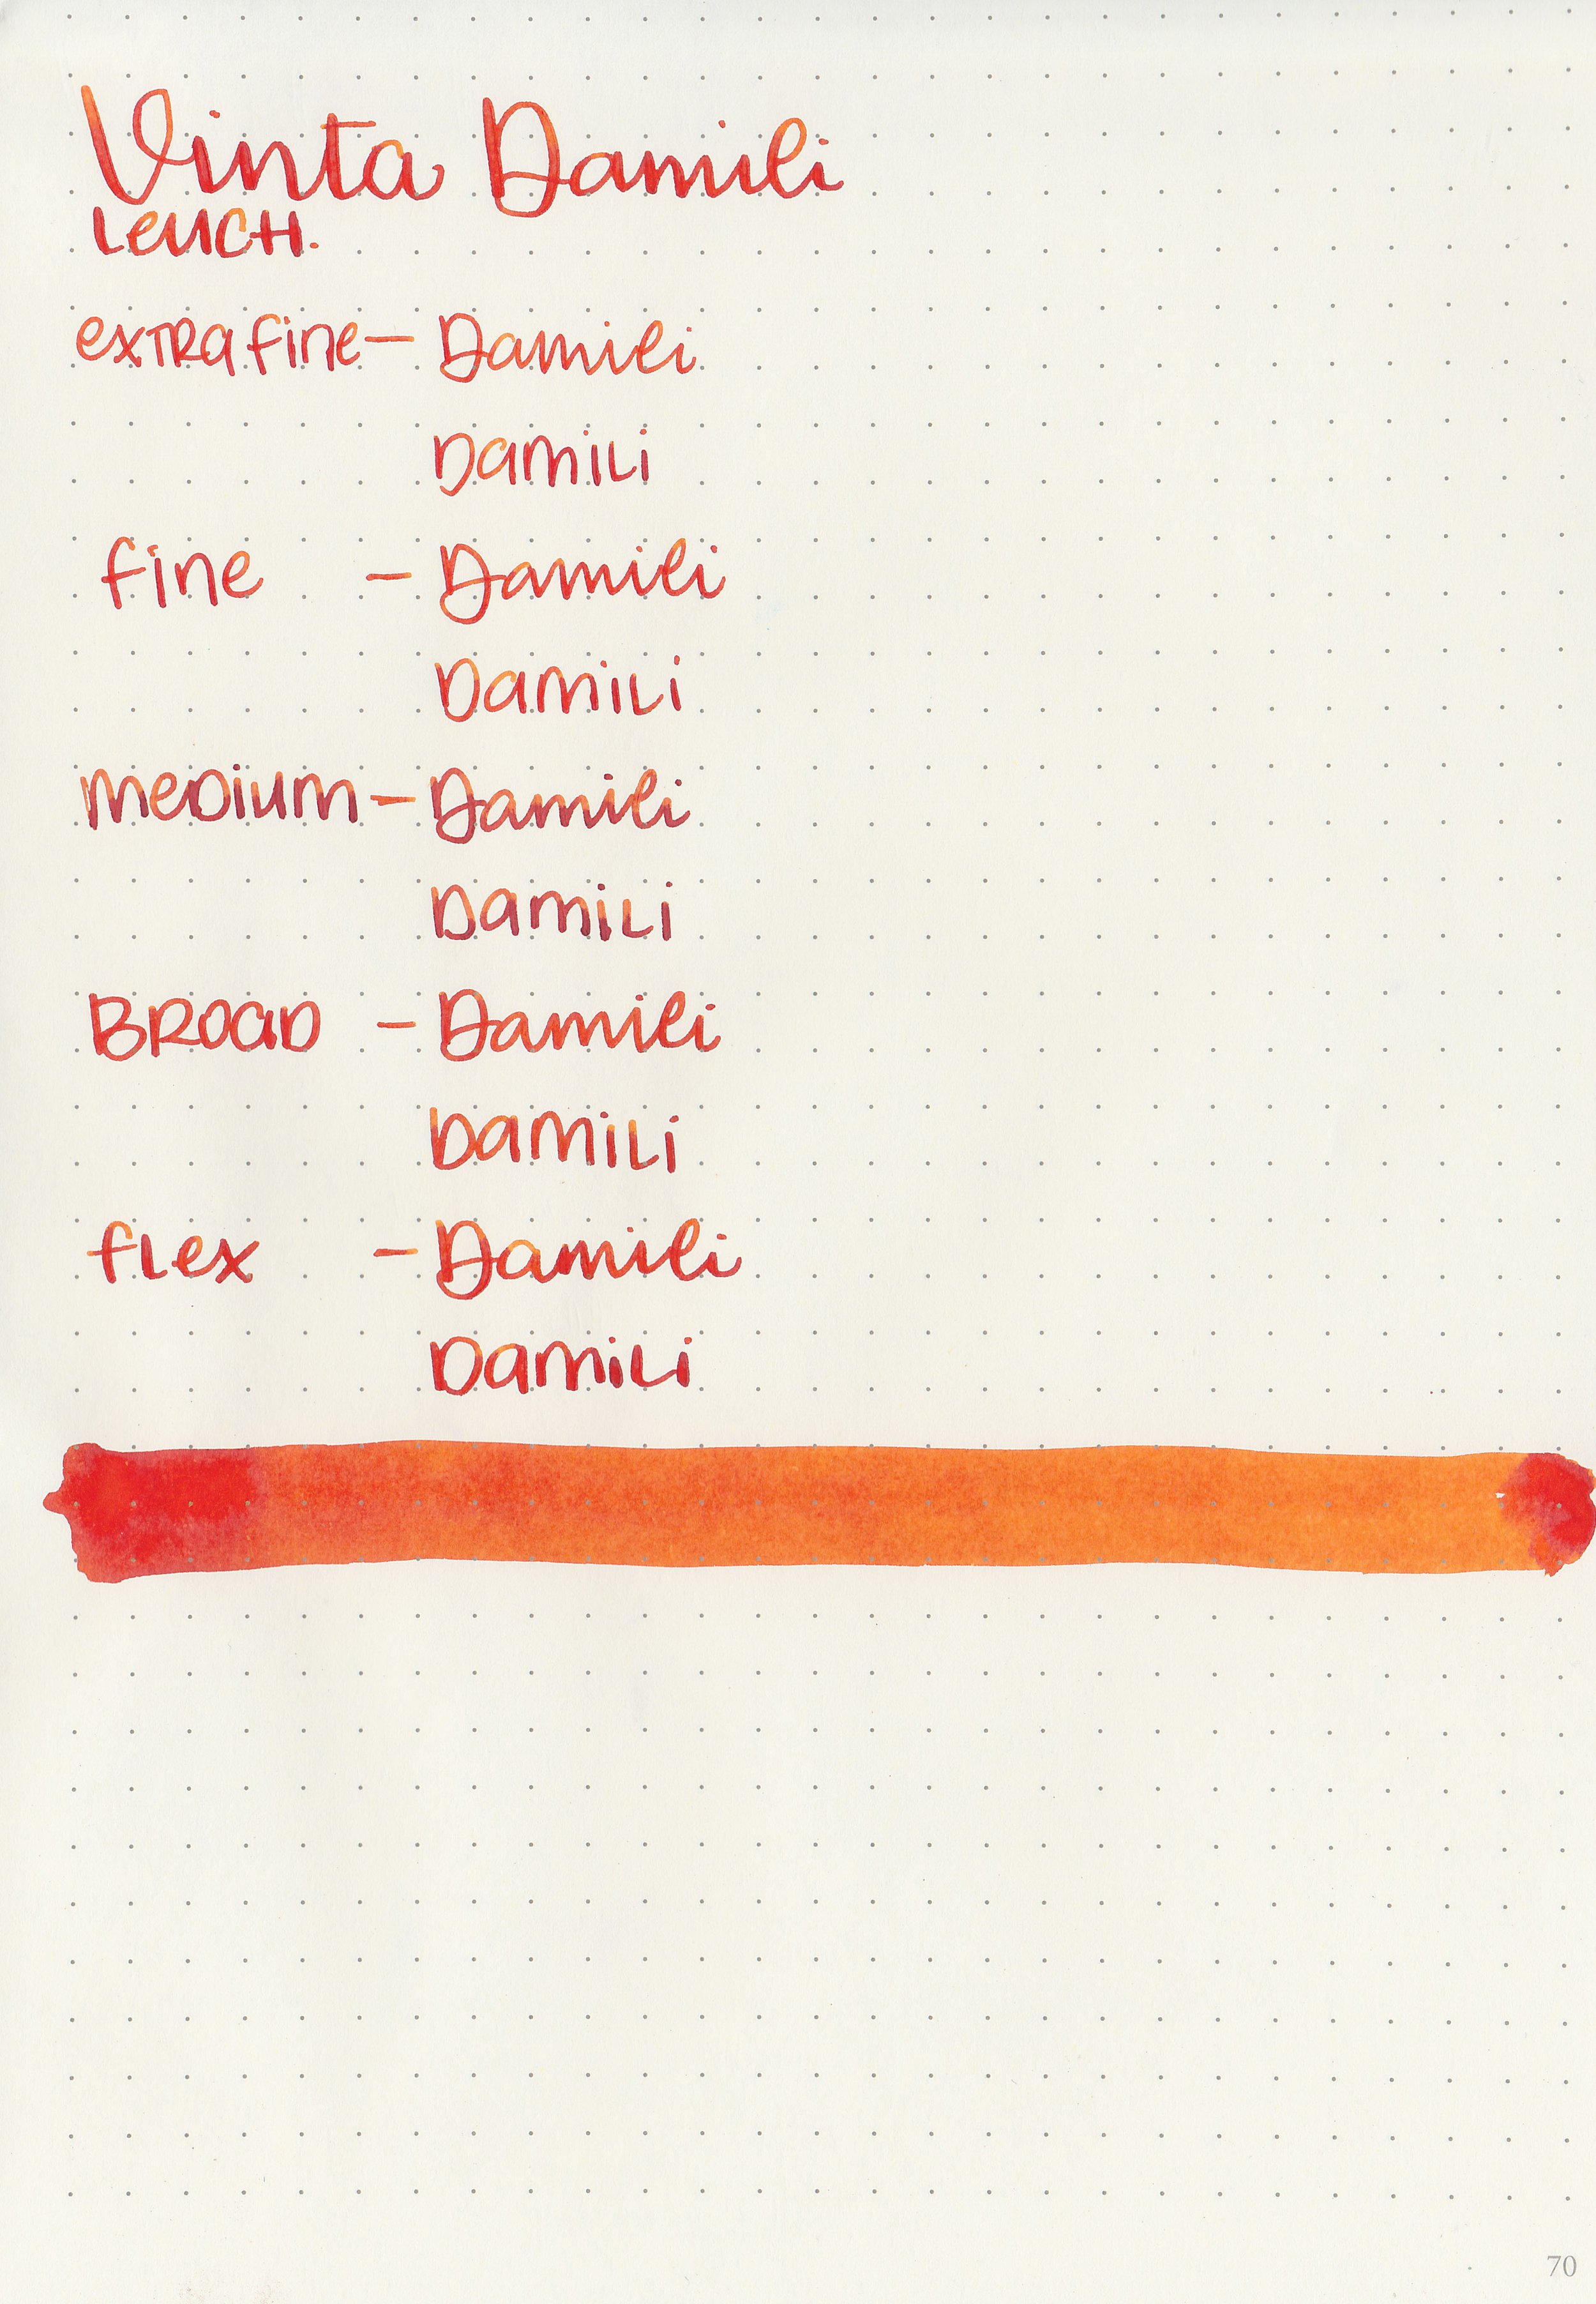 Vinta Damili
Leuch.
extra fine – Damili
Damili
fine – Damili
Damili
Medium – Damili
Damili
Broad – Damili
Damili
flex – Damili
Damili
70